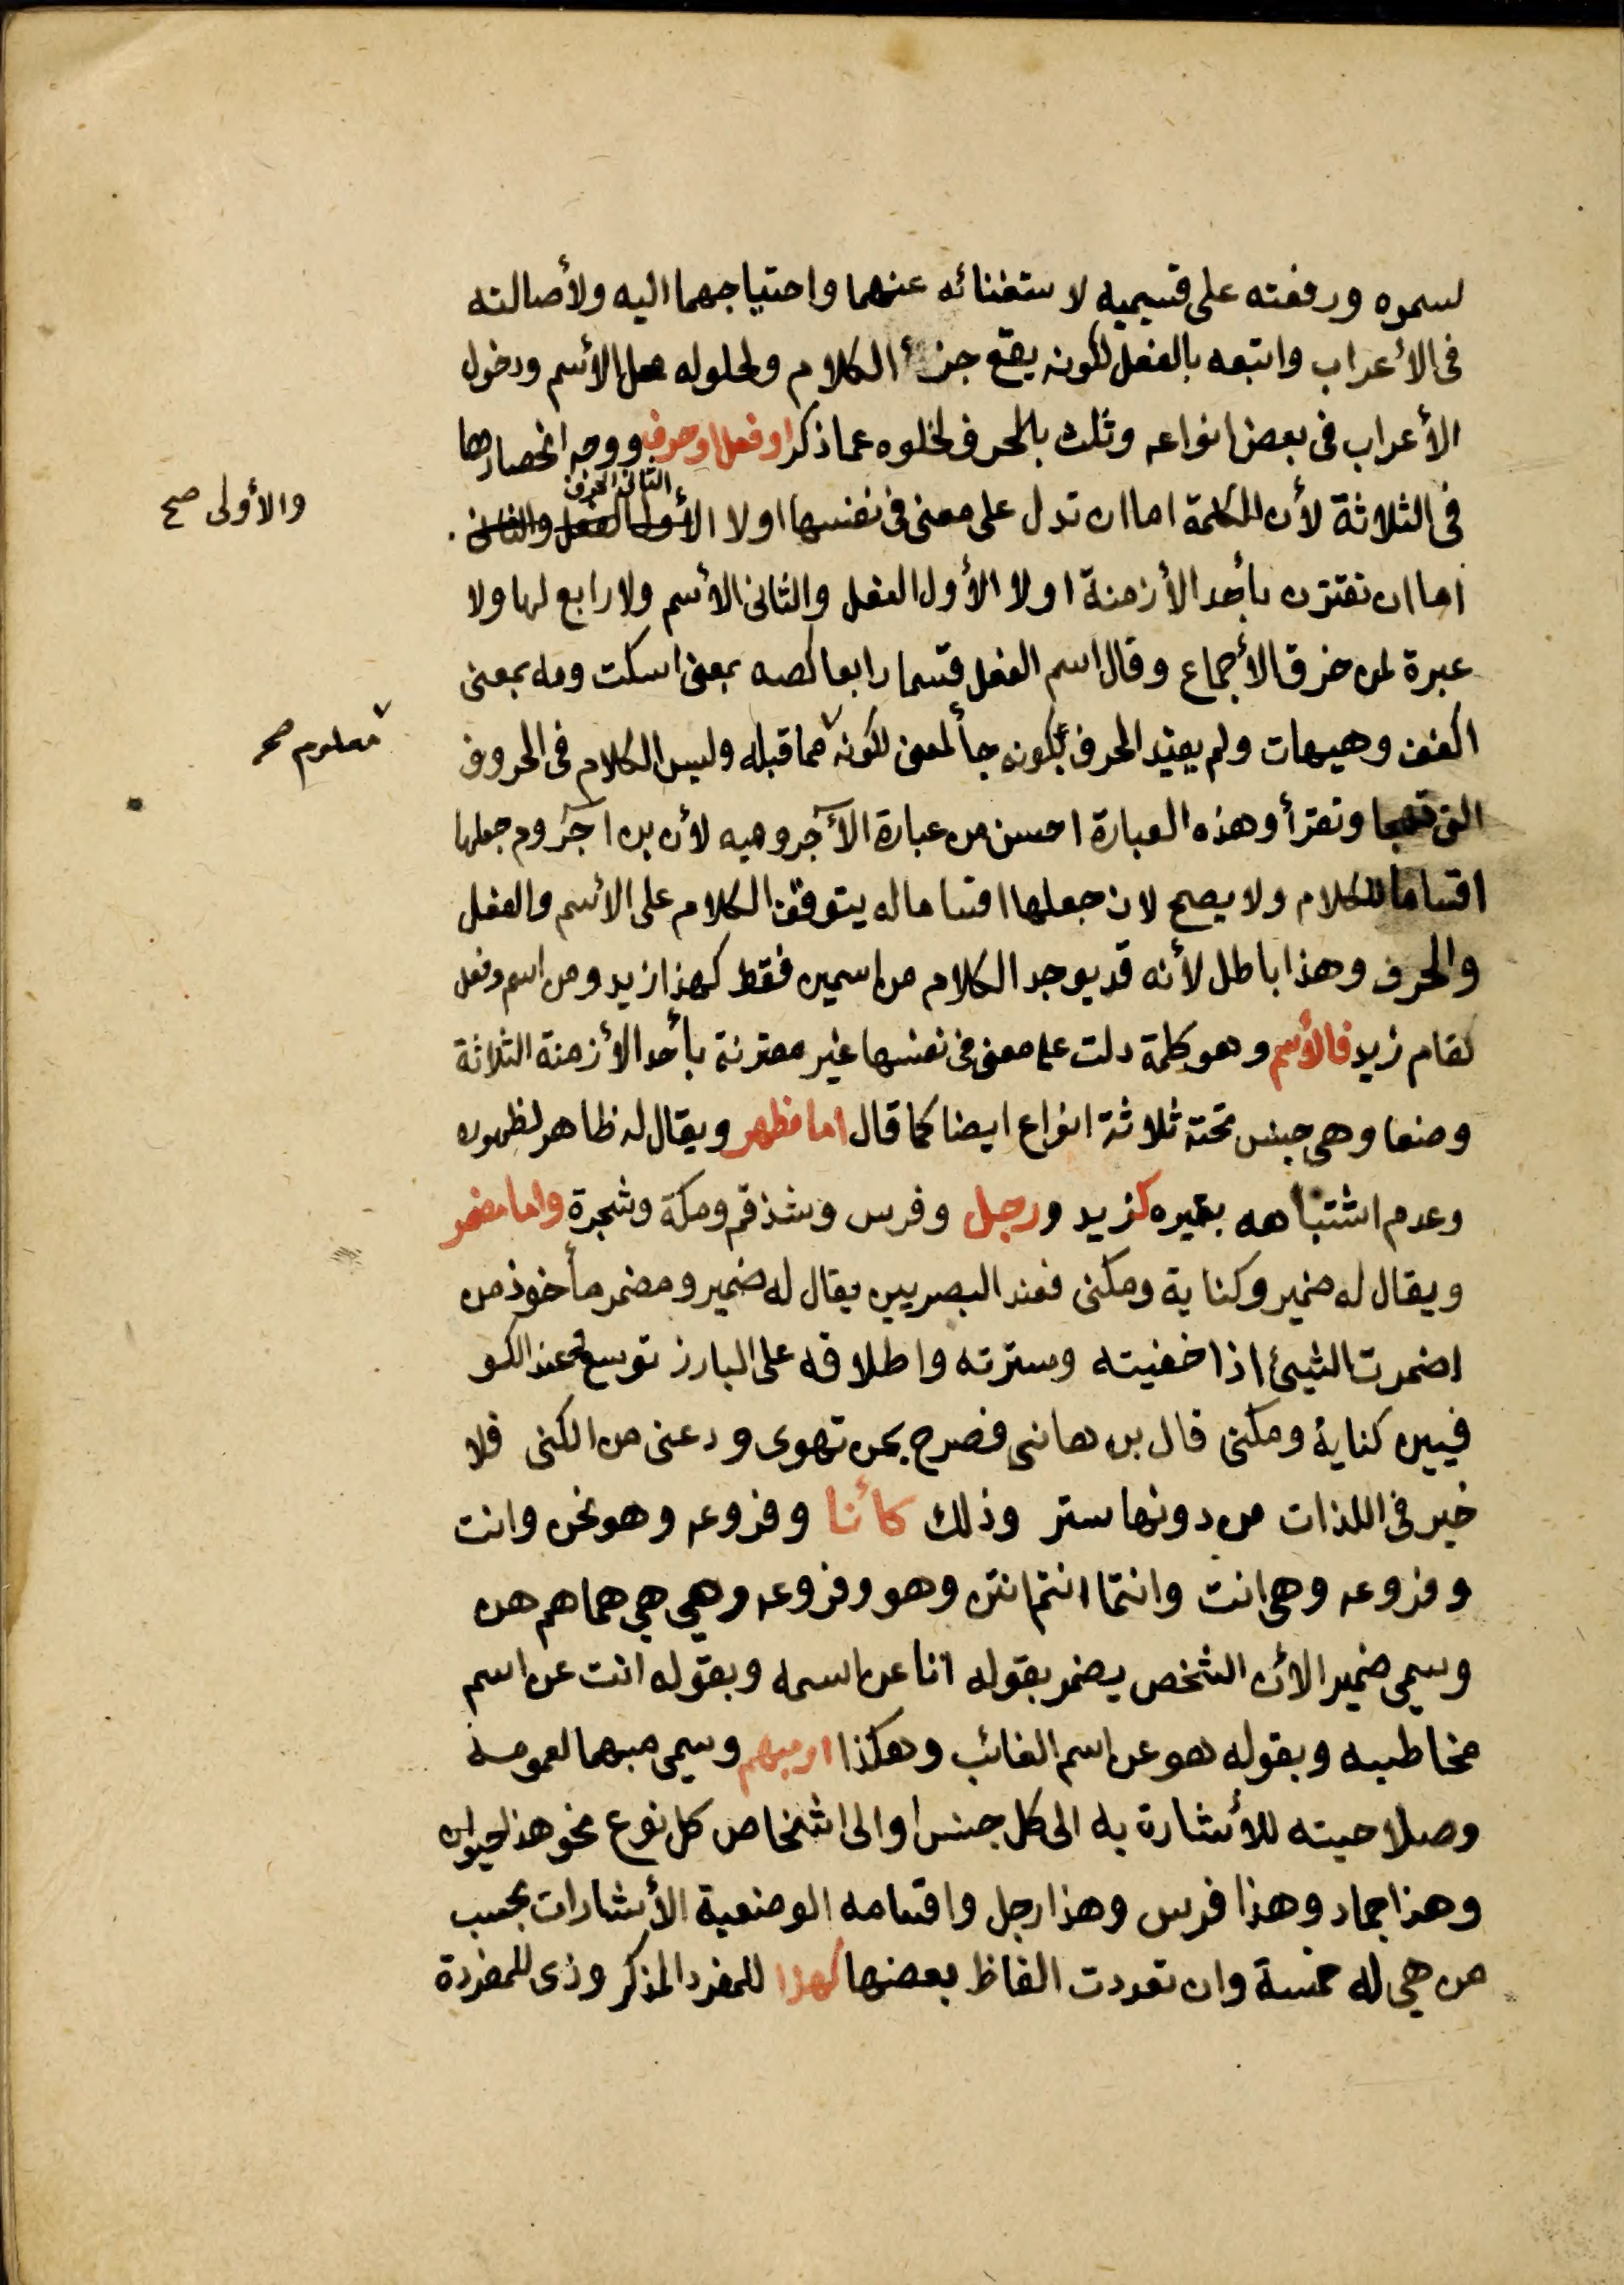 لسموه ورفعته على قسيميه لاستغنائه عنهما واحتياجهما اليه ولأصالته
فى الأعراب واتبعه بالفعل لكونه يقع جزأ الكلام ولحلوله محل الأسم ودخول
الأعراب فى بعض انواعه وثلث بالحرف لخلوه عما ذكر او فعل او حرف ووجه انحصارها
فى الثلاثة لأن الكلمة اما ان تدل على معنى فى نفسها اولا الأول الفعل والثانى
الثانى الحرف
والأولى صح
اما ان تقترن بأحد الأزمنة اولا الأول الفعل والثانى الأسم ولا رابع لها ولا
عبرة لمن خرق الأجماع وقال اسم الفعل قسما رابعا كصه بمعنى اسكت ومه بمعنى
اكفف وهيهات ولم يقيد الحرف بكونه جأ لمعنى لكونه مما قبله وليس الكلام فى الحروف
معلوم صح
التى تهجا وتقرأ وهذه العبارة احسن من عبارة الآجروميه لأن بن آجروم جعلها
اقساما للكلام ولا يصح لان جعلها اقساما له يتوقف الكلام على الأسم والفعل
والحرف وهذا باطل لأنه قد يوجد الكلام من اسمين فقط كهذا زيد ومن اسم وفعل
كقام زيد فالأسم وهو كلمة دلت على معنى فى نفسها غير مقترنة بأحد الأزمنة الثلاثة
وضعا وهى جنس تحته ثلاثة انواع ايضا كما قال اما مظهر ويقال له ظاهر لظهوره
وعدم اشتباهه بغيره كزيد ورجل وفرس وشذقم ومكة وشجرة واما مضمر
ويقال له ضمير وكناية ومكنى فعند البصريين يقال له ضمير ومضمر مأخوذ من
اضمرت الشيئ اذا خفيته وسترته واطلاقه على البارز توسع وعند الكو
فيين كناية ومكنى قال بن هانى فصرح بمن تهوى ودعنى من الكنى فلا
خير فى اللذات من دونها ستر وذلك كأنا وفروعه وهو نحن وانت
وفروعه وهى انت وانتما انتم انتن وهو وفروعه وهى هى هما هم هن
وسمى ضمير الأن الشخص يضمر بقوله انا عن اسمه وبقوله انت عن اسم
مخاطبه وبقوله هو عن اسم الغائب وهكذا او مبهم وسمى مبهما لعمومه
وصلاحيته للأشارة به الى كل جنس او الى اشخاص كل نوع نحو هذا حيوان
وهذا جماد وهذا فرس وهذا رجل واقسامه الوضعية الأشارات بحسب
من هى له خمسة وان تعددت الفاظ بعضها كهذا للمفرد المذكر وذى للمفردة